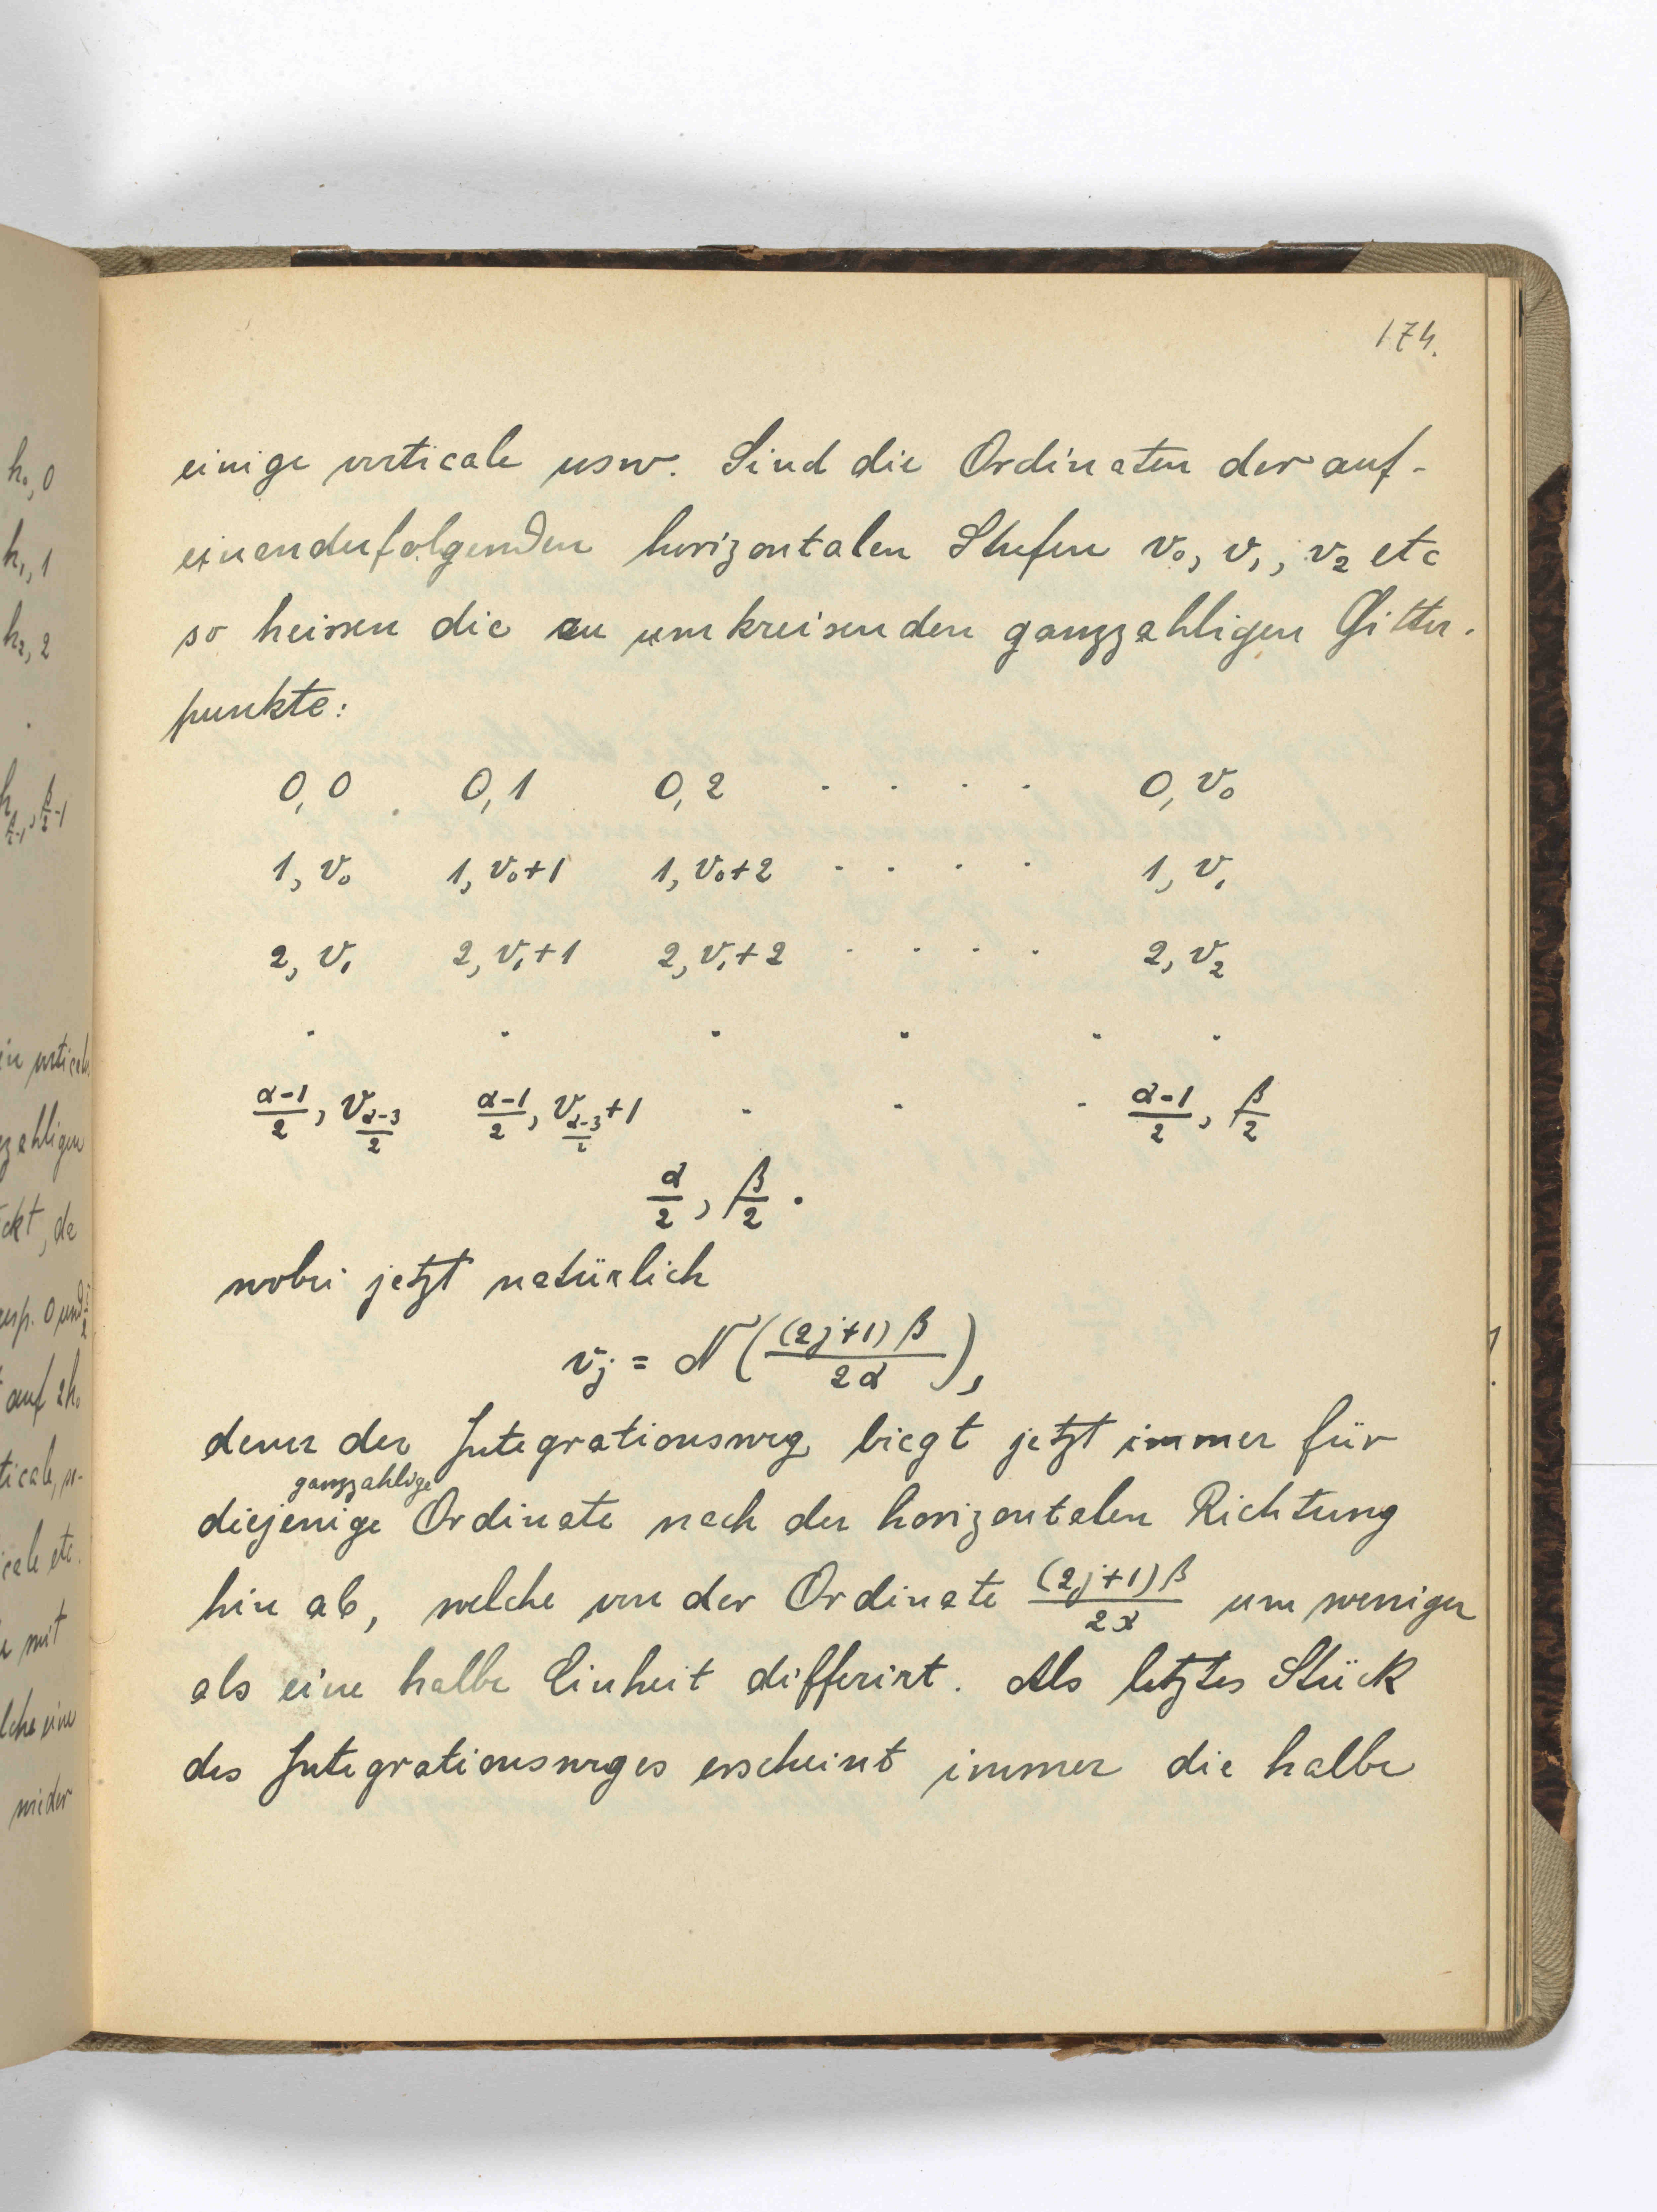 174.
einige verticale usw. Sind die Ordinaten der auf-
einanderfolgenden horizontalen Stufen v₀, v₁, v₂ etc
so heissen die zu umkreisenden ganzzahligen Gitter-
punkte:
0,0 0,1 0,2 . . . . 0, v₀
1, v₀ 1, v₀+1 1, v₀+2 . . . . 1, v₁
2, v₁ 2, v₁+1 2, v₁+2 . . . . 2, v₂
. . . . . .
(α-1)/2, v_{(α-3)/2} (α-1)/2, v_{(α-3)/2}+1 . . . (α-1)/2, β/2
α/2, β/2.
wobei jetzt natürlich
v_j = N((2j+1)β/2α),
denn der Integrationsweg biegt jetzt immer für
ganzzahlige
diejenige Ordinate nach der horizontalen Richtung
hin ab, welche von der Ordinate (2j+1)β/2α um weniger
als eine halbe Einheit differirt. Als letztes Stück
des Integrationsweges erscheint immer die halbe
h₀, 0
h₁, 1
h₂, 2
zahligen
ckt, da
resp. 0 und
auf 2h₀
cale etc.
mit
wieder